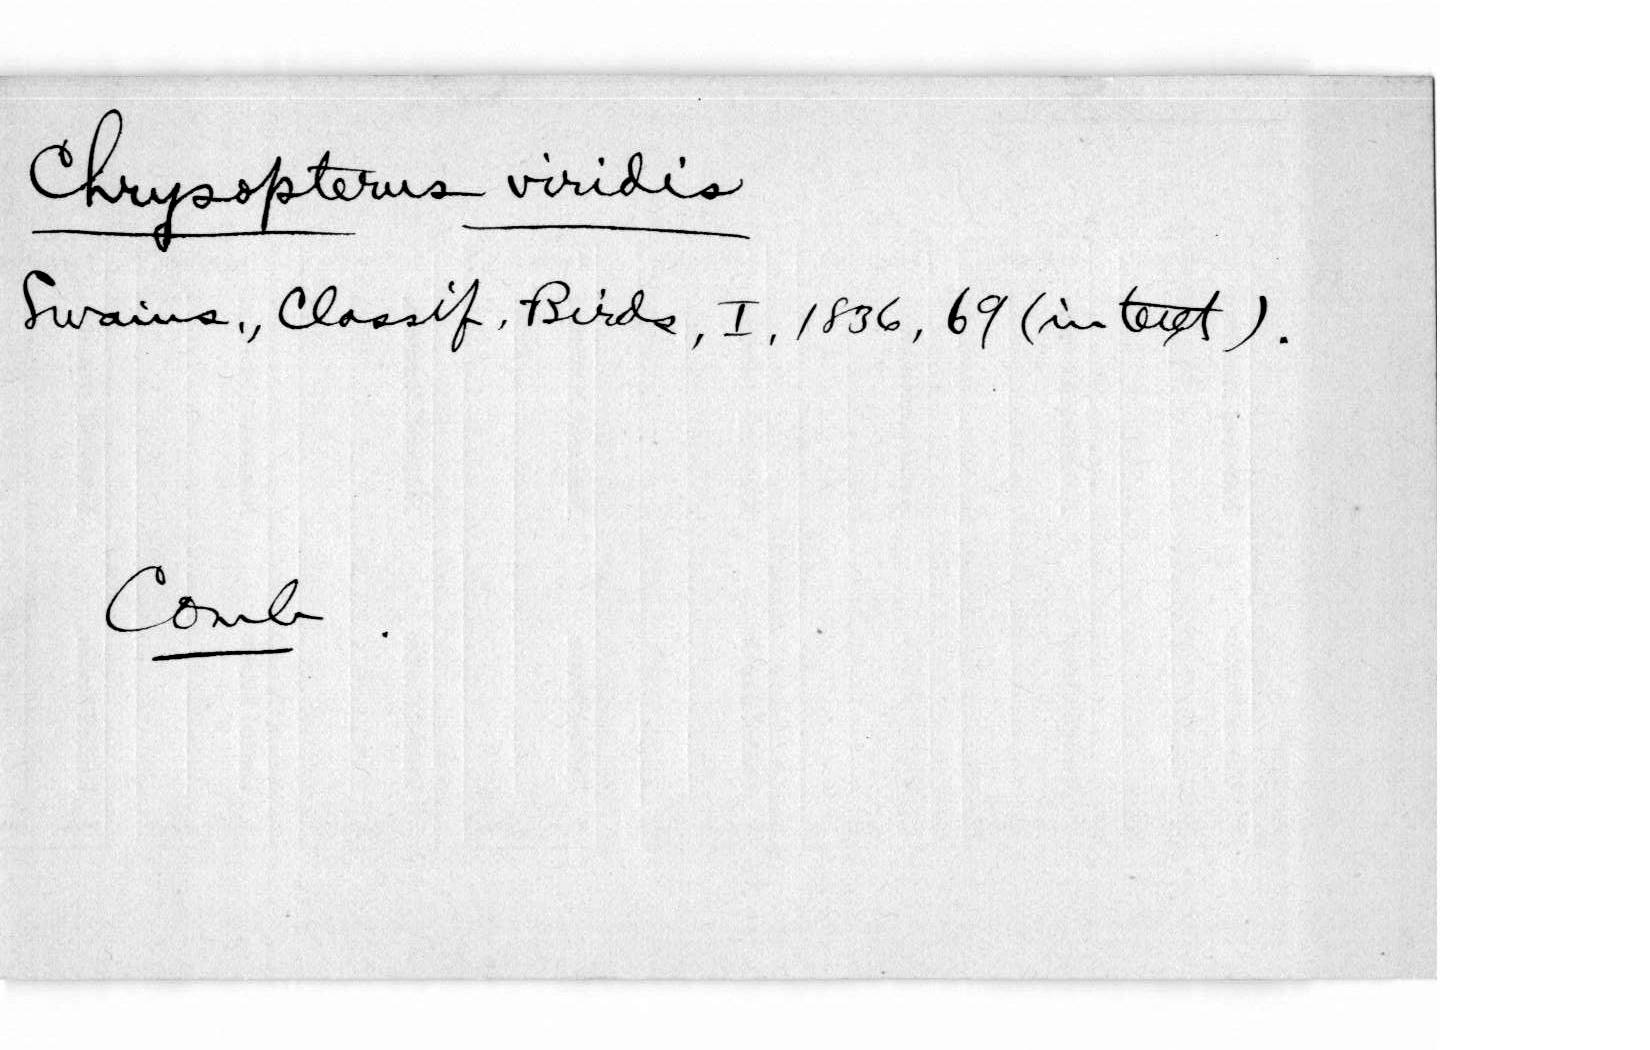 Chrysopterus viridis
Swains., Classif. Birds, I, 1836, 69 (in text).
Comb.